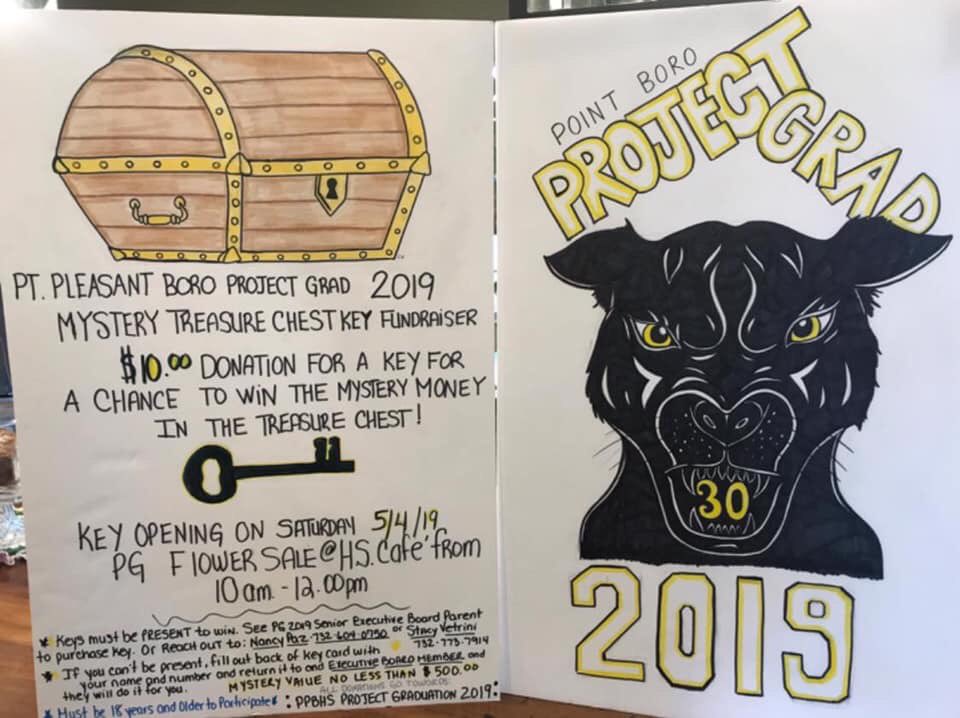 PT. PLEASANT BORO PROJECT GRAD 2019
MYSTERY TREASURE CHEST KEY FUNDRAISER
$10.00 DONATION FOR A KEY FOR
A CHANCE TO WIN THE MYSTERY MONEY
IN THE TREASURE CHEST!
KEY OPENING ON SATURDAY 5/4/19,
PG FlOWER SALE @ H.S. Cafe' from
10am. - 12.00pm
* Keys must be PRESENT to win. See PG 2019 Senior Executive Board Parent
to purchase key. Or REACH OUT to: Nancy Paz 732-604-0750 or Stacy Vetrini
732-773-7914
* IF you can't be present, fill out back of key card with
your name and number and return it to and Executive BOARD MEMBER and
they will do it for you.
MYSTERY VALUE NO LESS THAN $500.00
ALL DONATIONS GO TOWARDS
* Must be 18 years and Older to Participate * : PPBHS PROJECT GRADUATION 2019:
POINT BORO
PROJECT GRAD
30
2019